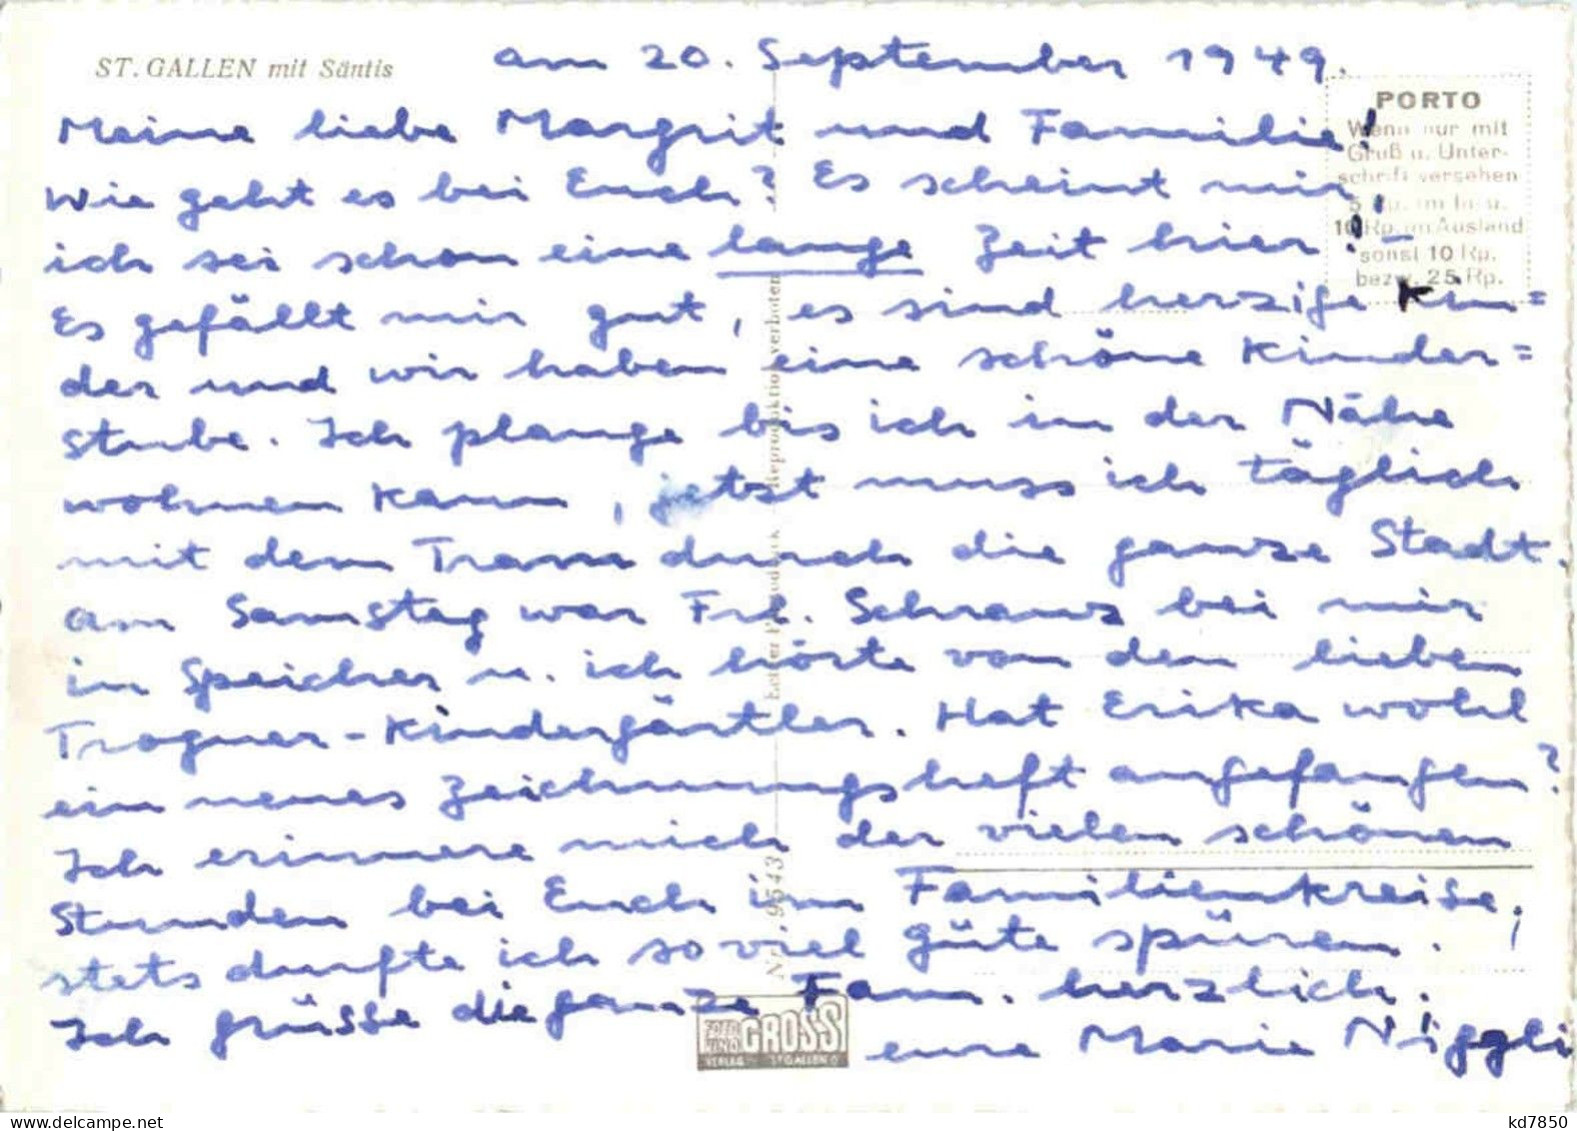 ST. GALLEN mit Säntis
am 20. September 1949.
PORTO
Wenn nur mit
Gruß u. Unter-
schrift versehen
5 Rp. im In- u.
10 Rp. im Ausland
sonst 10 Rp.
bezw. 25 Rp.
Meine liebe Margrit und Familie!
Wie geht es bei Euch? Es scheint mir,
ich sei schon eine lange Zeit hier! -
Es gefällt mir gut, es sind herzige Kin=
der und wir haben eine schöne Kinder=
stube. Ich plange bis ich in der Nähe
wohnen kann, jetzt muss ich täglich
mit dem Tram durch die ganze Stadt.
am Samstag war Frl. Schranz bei mir
in Speicher u. ich hörte von den lieben
Trogner-Kindergärtler. Hat Erika wohl
ein neues Zeichnungsheft angefangen?
Ich erinnere mich der vielen schönen
Stunden bei Euch im Familienkreise,
stets durfte ich so viel Güte spüren. !
Ich grüsse die ganze Fam. herzlich.
eure Marie Niggli
Echter Photodruck Reproduktion verboten
Nr. 9543
FOTO
GROSS
VERLAG ST. GALLEN
kd7850